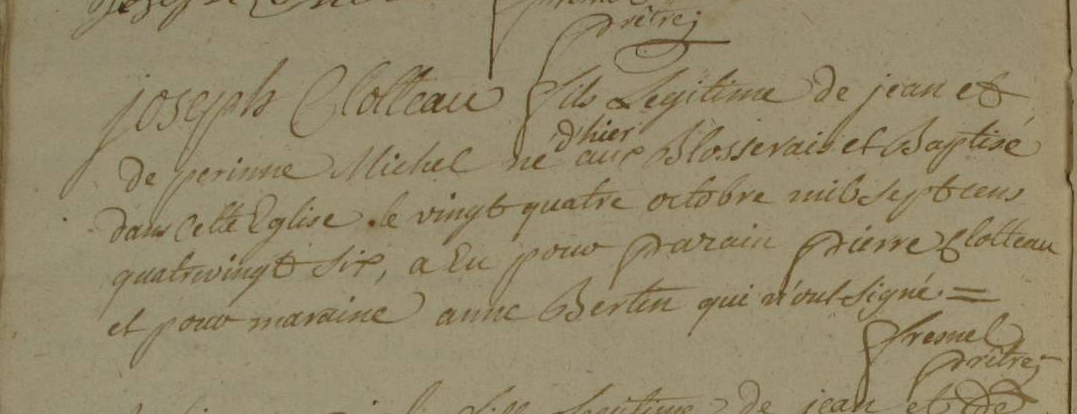 prêtre
joseph Clolteau fils Legitime de jean et
de perinne Michel né d'hier aux Blosserais et Baptisé
dans cette Eglise le vingt quatre octobre mil sept cens
quatrevingt six, a Eu pour parain pierre Clolteau
et pour maraine anne Bertin qui n'ont signé =
fresnel
prêtre
fille Legitime de jean et de